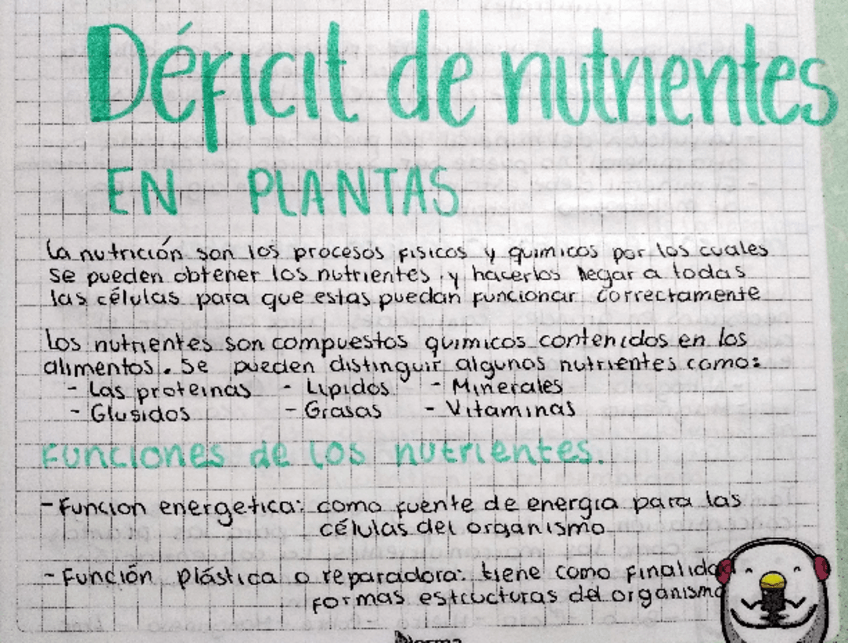 Déficit de nutrientes
EN PLANTAS
La nutrición son los procesos fisicos y quimicos por los cuales
se pueden obtener los nutrientes y hacerlos llegar a todas
las células para que estas puedan funcionar correctamente
Los nutrientes son compuestos quimicos contenidos en los
alimentos. Se pueden distinguir algunos nutrientes como:
- Las proteinas - Lipidos - Minerales
- Glusidos - Grasas - Vitaminas
Funciones de los nutrientes.
- Funcion energetica: como fuente de energia para las
células del organismo
- Función plástica o reparadora: tiene como finalidad
formas estructuras del organismo
Norma